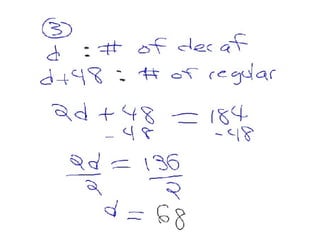 ③
d : # of decaf
d+48 : # of regular
2d + 48 = 184
-48 -48
2d = 136
2 2
d = 68